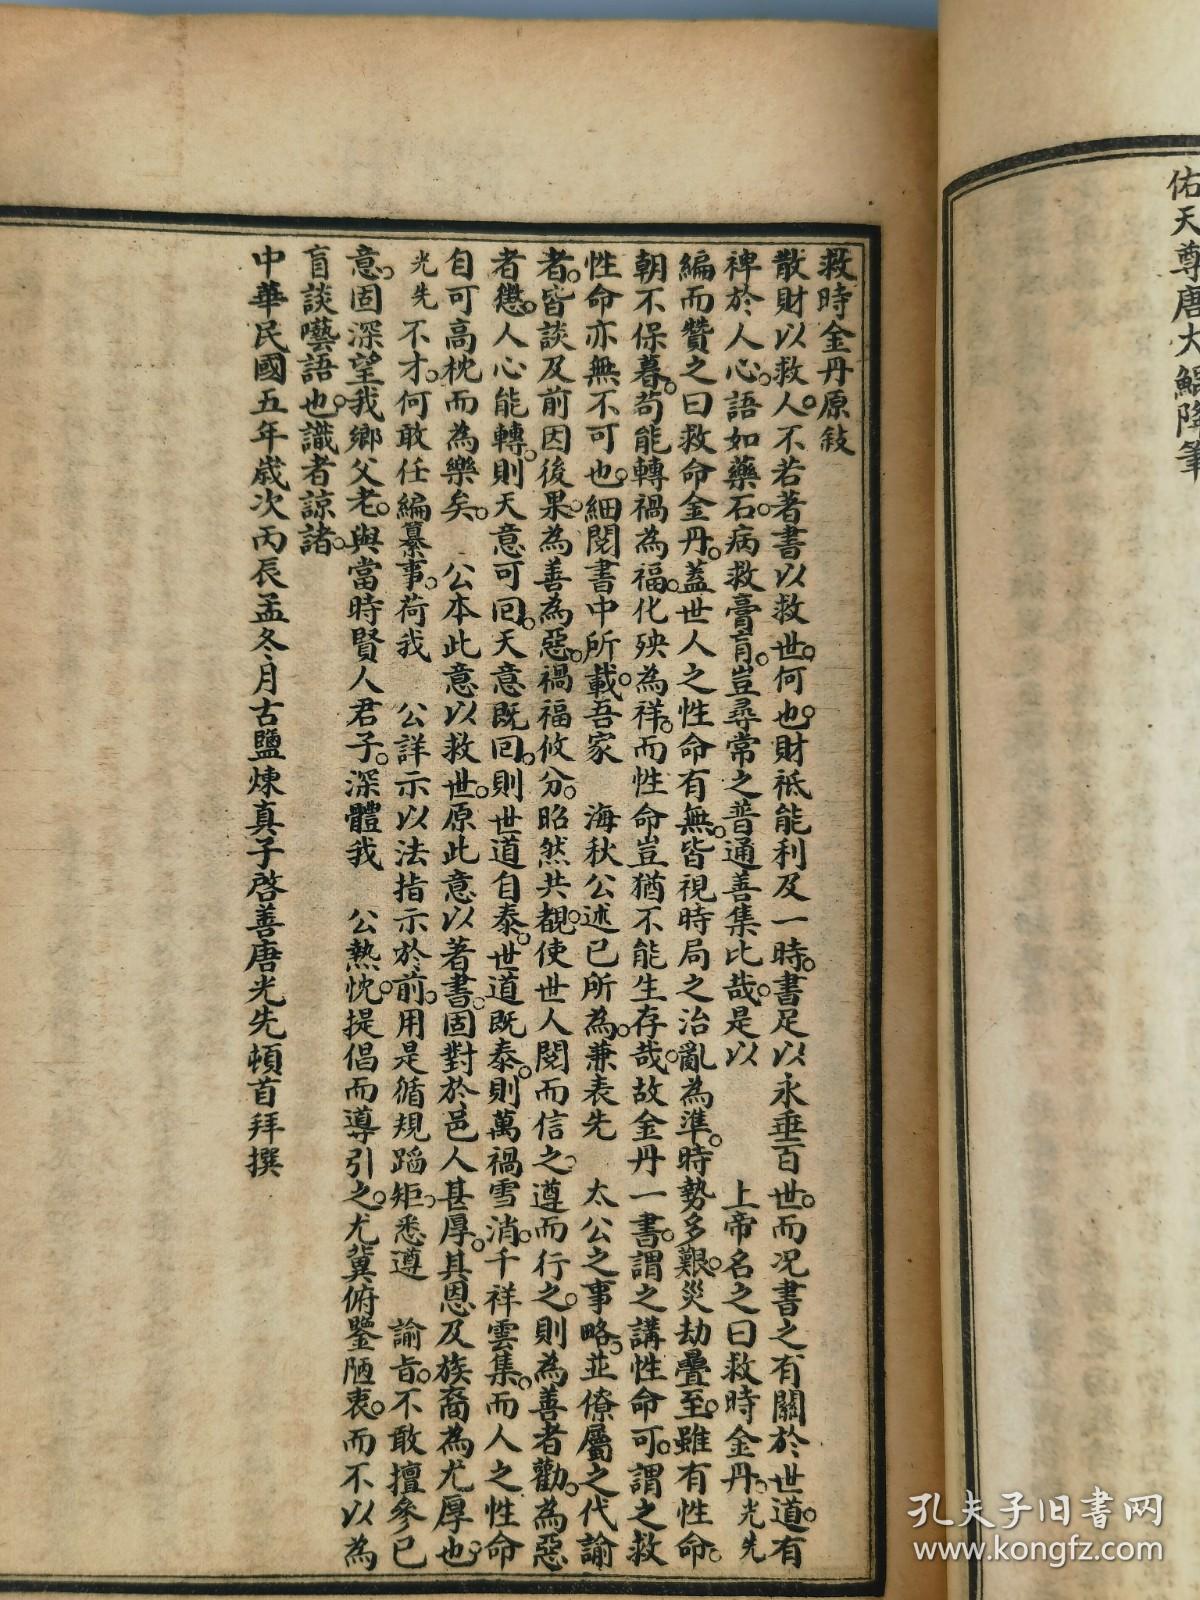 佑天尊唐大鯤降筆
救時金丹原敍
散財以救人。不若著書以救世。何也。財祇能利及一時。書足以永垂百世。而況書之有關於世道。有
裨於人心。語如藥石。病救膏肓。豈尋常之普通善集比哉。是以　上帝名之曰救時金丹。光先
編而贊之曰救命金丹。蓋世人之性命有無。皆視時局之治亂為準。時勢多艱。災劫疊至。雖有性命。
朝不保暮。苟能轉禍為福。化殃為祥。而性命豈猶不能生存哉。故金丹一書。謂之講性命可。謂之救
性命亦無不可也。細閱書中所載。吾家　海秋公述已所為。兼表先　太公之事略。並僚屬之代諭
者。皆談及前因後果。為善為惡。禍福攸分。昭然共覩。使世人閱而信之。遵而行之。則為善者勸。為惡
者懲。人心能轉。則天意可囘。天意既囘。則世道自泰。世道既泰。則萬禍雪消。千祥雲集。而人之性命
自可高枕而為樂矣。　公本此意以救世。原此意以著書。固對於邑人甚厚。其恩及族裔為尤厚也。
光先不才。何敢任編纂事。荷我　公詳示以法。指示於前。用是循規蹈矩。悉遵　諭旨。不敢擅參已
意。固深望我鄉父老。與當時賢人君子。深體我　公熱忱。提倡而導引之。尤冀俯鑒陋衷。而不以為
盲談囈語也。識者諒諸。
中華民國五年歲次丙辰孟冬月古鹽煉真子啓善唐光先頓首拜撰
孔夫子旧书网
www.kongfz.com